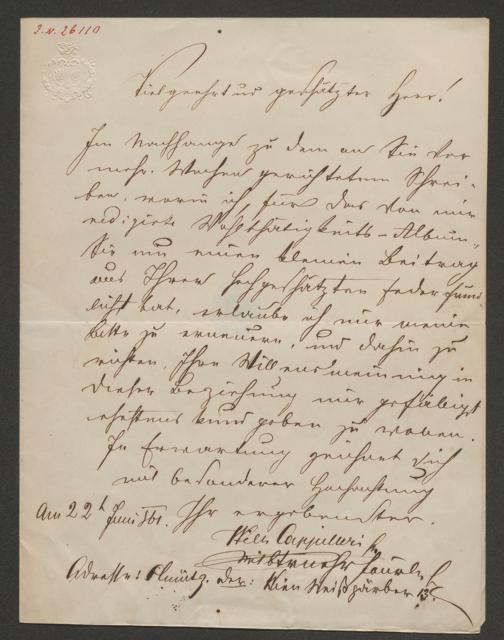 J.N. 26110
Vielgeehrt und geschätzter Herr!
Im Nachhange zu dem an Sie vor
mehr. Wochen gerichteten Schrei-
ben, worin ich für das von mir
redigirte Wohlthätigkeits-Album,
Sie um einen kleinen Beitrag
aus Ihrer hochgeschätzten Feder
hat, erlaube ich mir meine
Bitte zu erneuern, und dahin zu
richten, Ihre Willensmeinung in
dieser Beziehung mir gefälligst
ehestens kund geben zu wollen.
In Erwartung zeichnet sich
mit besonderer Hochachtung
Ihr ergebenster
Am 22t Juni
Adresse: Olmütz. der: Wien Weißgärber